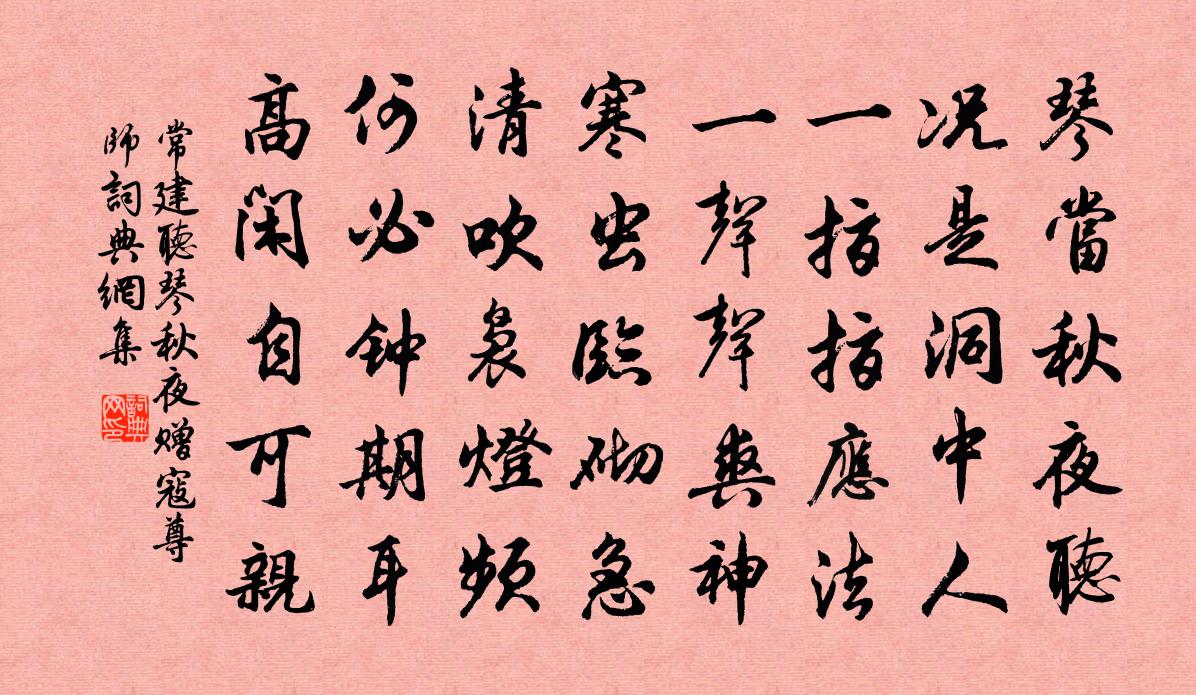 琴當秋夜聽
况是洞中人
一指指應法
一聲聲爽神
寒虫臨砌急
清吹裊燈頻
何必钟期耳
高閑自可親
常建聽琴秋夜赠寇尊
師詞典網集
詞典
网印